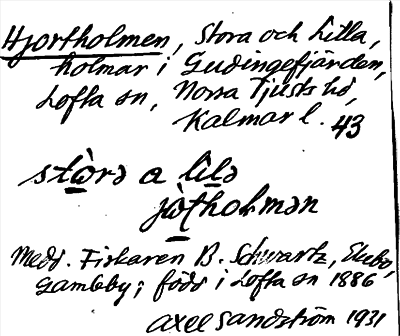 Hjortholmen, Stora och Lilla,
holmar i Gudingefjärden,
Lofta sn, Norra Tjusts hd,
Kalmar l. 43
stòrə a lìlə
jòṭholmən
Medd. Fiskaren B. Schwartz, Ekebo,
Gamleby; född i Lofta sn 1886
Axel Sandström 1931